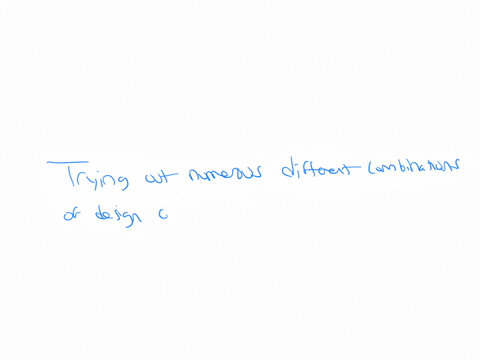 Trying out numerous different combinations
of design c